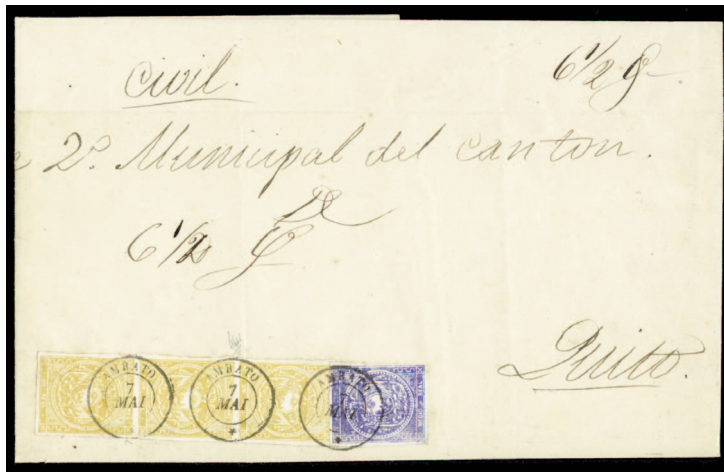 Civil.
6 1/2 g
2º. Municipal del canton.
De
6 1/2 g
Quito.
AMBATO
7
MAI
AMBATO
7
MAI
AMBATO
7
MAI